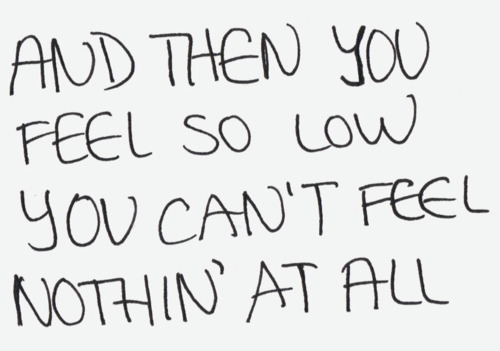 AND THEN YOU
FEEL SO LOW
YOU CAN'T FEEL
NOTHIN' AT ALL